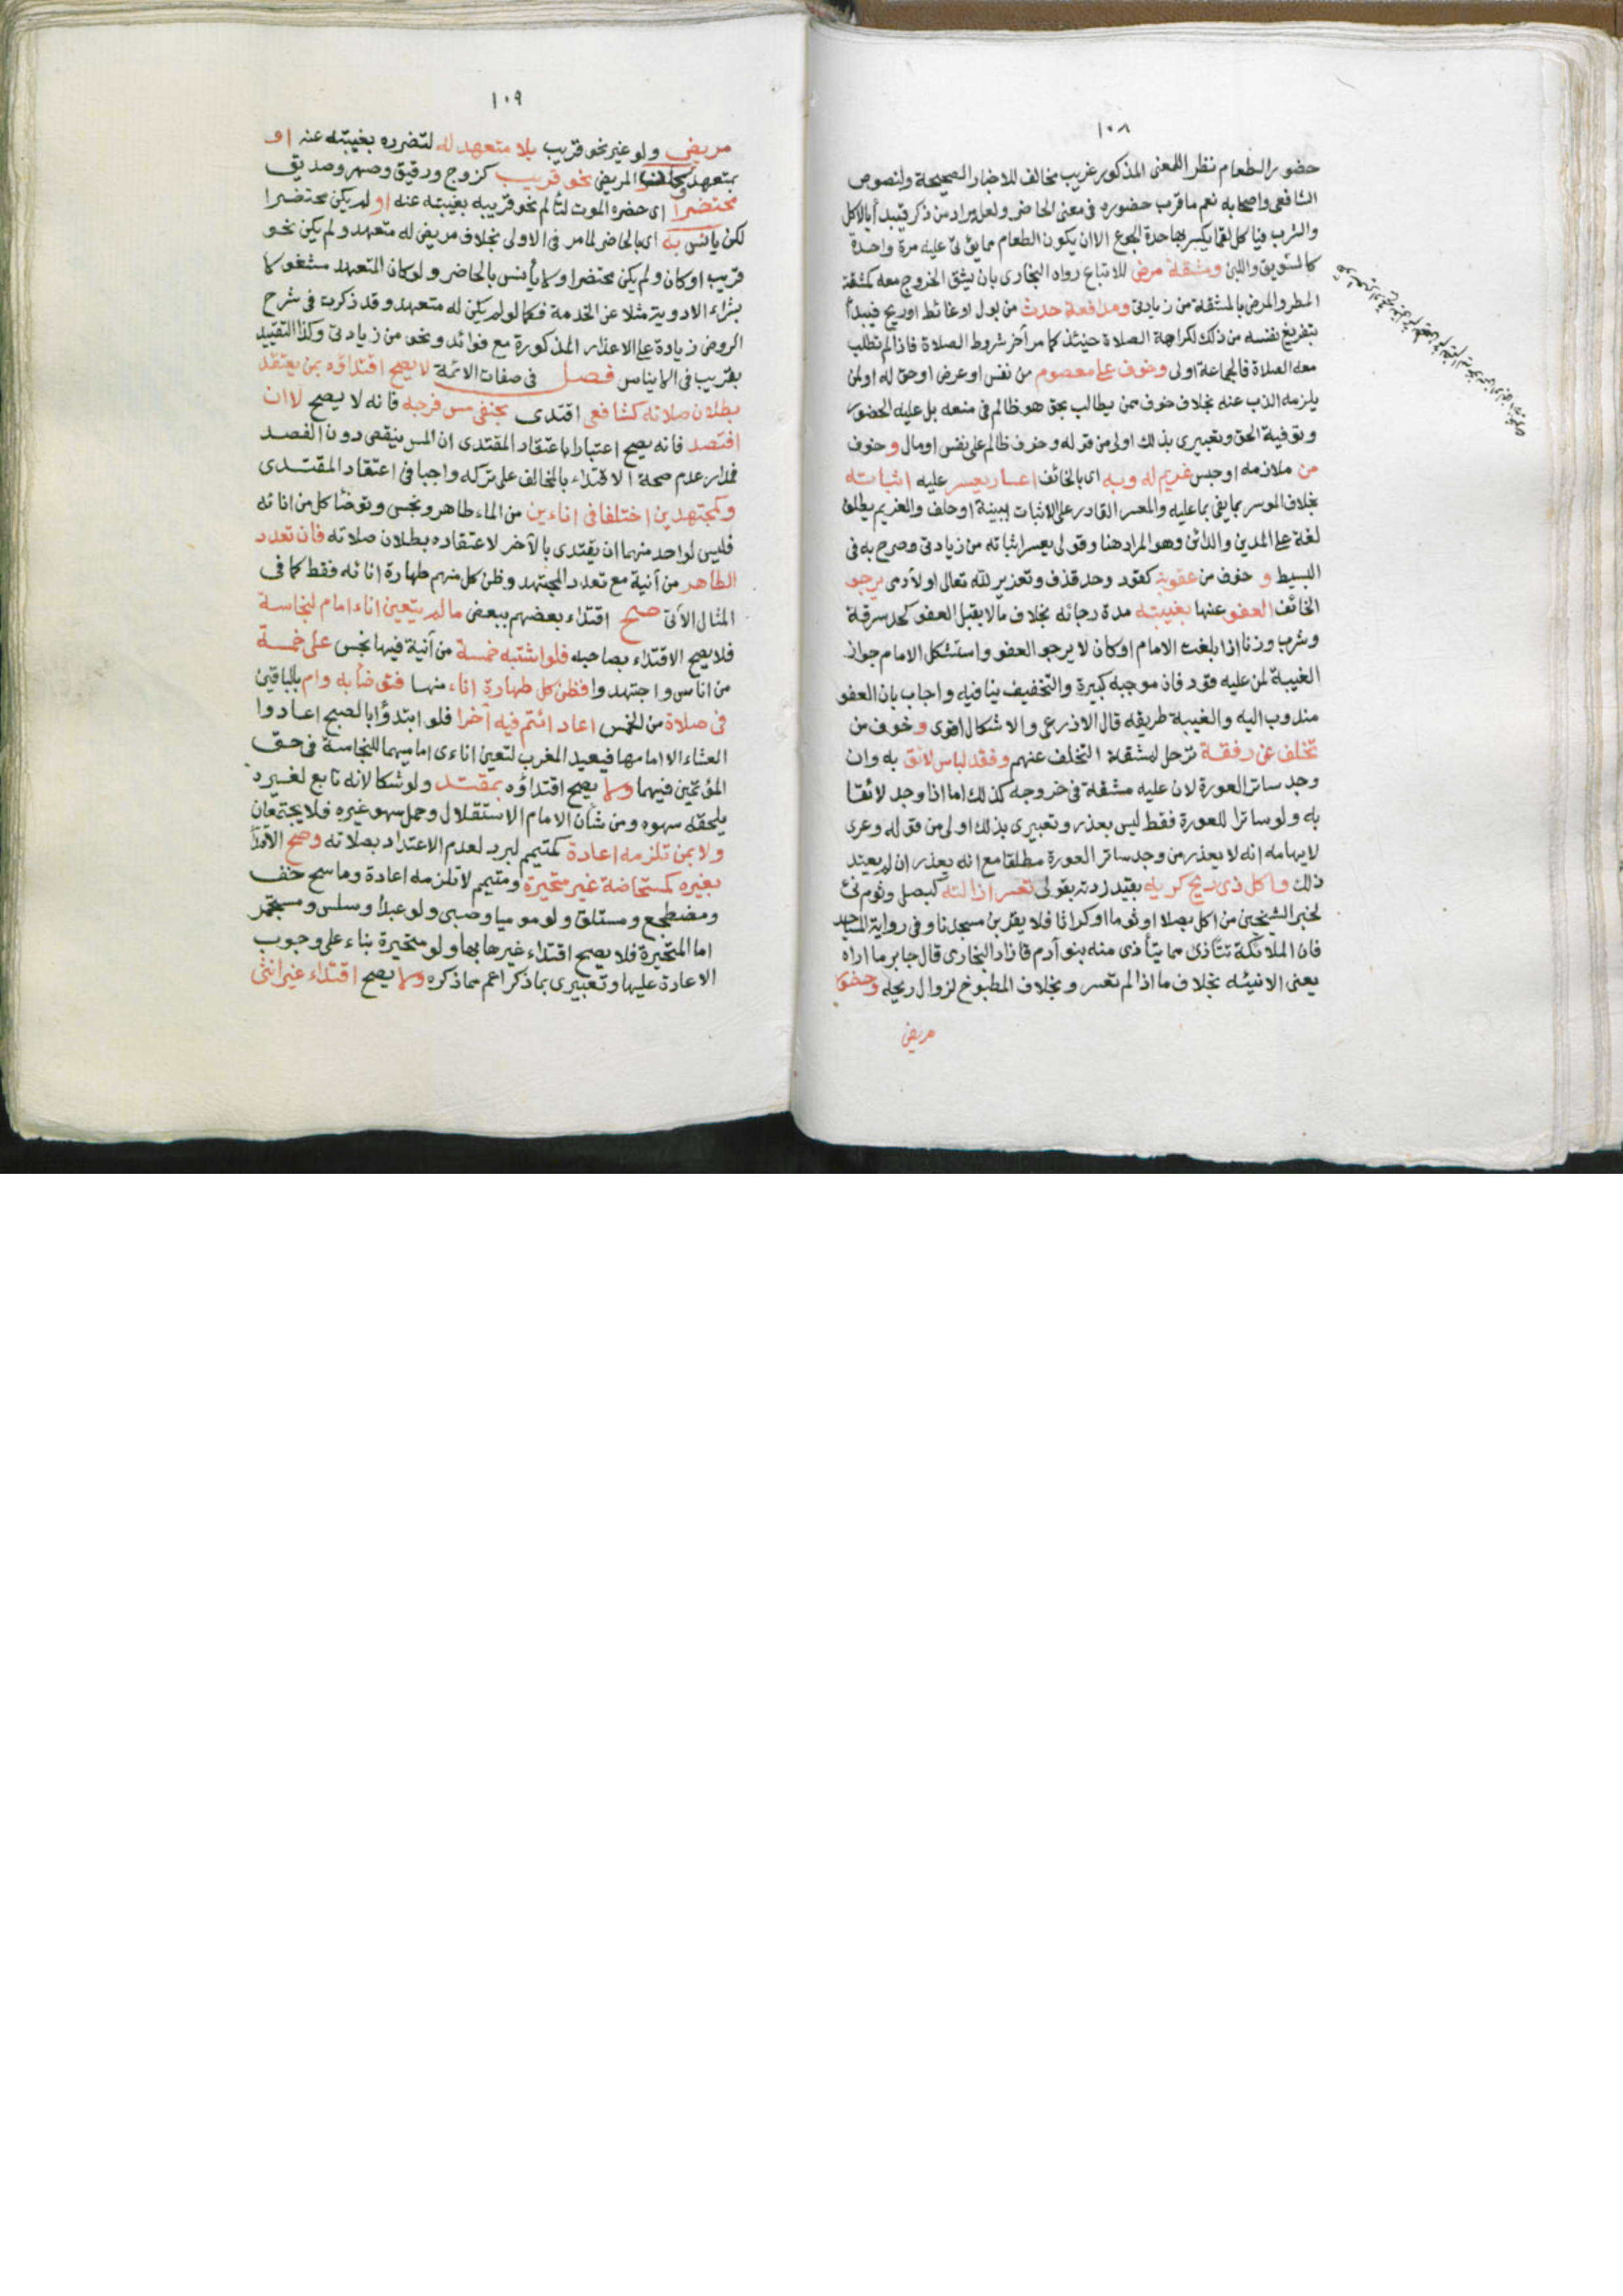 ١٠٨
حضور الطعام نظر اللمعنى المذكور غريب مخالف للاخبار الصحيحة ولنصوص
الشافعى واصحابه نعم ما قرب حضوره فى معنى الحاضر ولعله مراد من ذكر فيبدأ بالاكل
والشرب فياكل لقما يكسر بها حدة الجوع الا ان يكون الطعام مما يؤتى عليه مرة واحدة
كالسويق واللبن ومشقة مرض للاتباع رواه البخارى بان يشق الخروج معه كمشقة
المطر والمرض بالمشقة من زيادتى ومدافعة حدث من بول او غائط او ريح فيبدأ
بتفريغ نفسه من ذلك لكراهة الصلاة حينئذ كما مر آخر شروط الصلاة فاذا لم تطلب
معه الصلاة فالجماعة اولى وخوف على معصوم من نفس او عرض او حق له او لمن
يلزمه الذب عنه بخلاف خوف ممن يطالب بحق هو ظالم فى منعه بل عليه الحضور
وتوفية الحق وتعبيرى بذلك اولى من قوله وخوف ظالم على نفس او مال وخوف
من ملازمه او حبس غريم له وبه اى بالخائف اعسار يعسر عليه اثباته
بخلاف الموسر بما يفى بما عليه والمعسر القادر على الاثبات ببينة او حلف والغريم يطلق
لغة على المدين والدائن وهو المراد هنا وقولى يعسر اثباته من زيادتى وصرح به فى
البسيط و خوف من عقوبة كقود وحد قذف وتعزير لله تعالى او لآدمى يرجو
الخائف العفو عنها بغيبته مدة رجائه بخلاف ما لا يقبل العفو كحد سرقة
وشرب وزنا اذا بلغت الامام او كان لا يرجو العفو واستشكل الامام جواز
الغيبة لمن عليه قود فان موجبه كبيرة والتخفيف ينافيه واجاب بان العفو
مندوب اليه والغيبة طريقه قال الاذرعى والاشكال اقوى و خوف من
تخلف عن رفقة ترحل لمشقة التخلف عنهم وفقد لباس لائق به وان
وجد ساتر العورة لان عليه مشقة فى خروجه كذلك اما اذا وجد لائقا
به ولو ساترا للعورة فقط ليس بعذر وتعبيرى بذلك اولى من قوله وعرى
لايهامه انه لا يعذر من وجد ساتر العورة مطلقا مع انه يعذر ان لم يعتد
ذلك واكل ذى ريح كريه بقيد زدته بقولى تعسر ازالته كبصل وثوم نئ
لخبر الشيخين من اكل بصلا او ثوما او كراثا فلا يقربن مسجدنا وفى رواية المساجد
فان الملائكة تتأذى مما يتأذى منه بنو آدم فازاد البخارى قال جابر ما اراه
يعنى الا نيئه بخلاف ما اذا لم تعسر و بخلاف المطبوخ لزوال ريحه وحضور
مريض
١٠٩
مريض ولو غير نحو قريب بلا متعهد له لتضرره بغيبته عنه او
بمتعهد وكان المريض نحو قريب كزوج ورقيق وصهر وصديق
محتضرا اى حضره الموت لتألم نحو قريبه بغيبته عنه او لم يكن محتضرا
لكن يأنس به اى بالحاضر لما مر فى الاولى بخلاف مريض له متعهد ولم يكن نحو
قريب او كان ولم يكن محتضرا ولا يأنس بالحاضر ولو كان المتعهد مشغولا
بشراء الادوية مثلا عن الخدمة فكما لو لم يكن له متعهد وقد ذكرت فى شرح
الروض زيادة على الاعذار المذكورة مع فوائد ونحو من زيادتى وكذا التقييد
بقريب فى الايناس فصل فى صفات الائمة لا يصح اقتداؤه بمن يعتقد
بطلان صلاته كشافعى اقتدى بحنفى مس فرجه فانه لا يصح لا ان
افتصد فانه يصح اعتبارا باعتقاد المقتدى ان المس ينقض دون الفصد
فمدار عدم صحة الاقتداء بالمخالف على تركه واجبا فى اعتقاد المقتدى
وكمجتهدين اختلفا فى اناءين من الماء طاهر ونجس وتوضأ كل من انائه
فليس لواحد منهما ان يقتدى بالآخر لاعتقاده بطلان صلاته فان تعدد
الطاهر من آنية مع تعدد المجتهد وظن كل منهم طهارة انائه فقط كما فى
المثال الآتى صح اقتداء بعضهم ببعض ما لم يتعين اناء امام لنجاسة
فلا يصح الاقتداء بصاحبه فلو اشتبه خمسة من آنية فيها نجس على خمسة
من اناس واجتهدوا فظن كل طهارة اناء منها فتوضأ به وام بالباقين
فى صلاة من الخمس اعاد ائتم فيه آخرا فلو ابتدؤا بالصبح اعادوا
العشاء الا امامها فيعيد المغرب لتعين اناءى اماميهما للنجاسة فى حق
المؤتمين فيهما ولا يصح اقتداؤه بمقتد ولو شكا لانه تابع لغيره
يلحقه سهوه ومن شأن الامام الاستقلال وحمل سهو غيره فلا يجتمعان
ولا بمن تلزمه اعادة كمتيمم لبرد لعدم الاعتداد بصلاته وصح الاقتداء
بغيره كمستحاضة غير متحيرة ومتيمم لا تلزمه اعادة وماسح خف
ومضطجع ومستلق ولو موميا وصبى ولو عبدا وسلس ومستجمر
اما المتحيرة فلا يصح اقتداء غيرها بها ولو متحيرة بناء على وجوب
الاعادة عليها وتعبيرى بما ذكر اعم مما ذكره ولا يصح اقتداء غير انثى